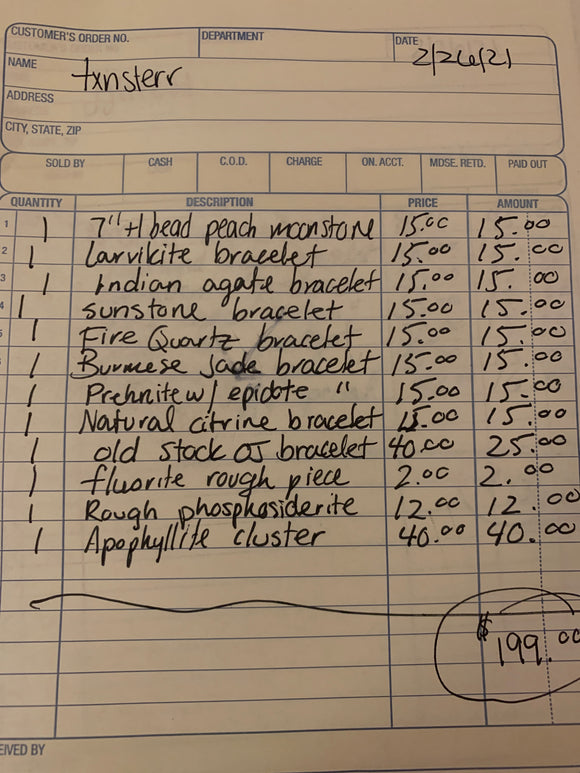 CUSTOMER'S ORDER NO. DEPARTMENT DATE 2/26/21
NAME txnsterr
ADDRESS
CITY, STATE, ZIP
SOLD BY CASH C.O.D. CHARGE ON. ACCT. MDSE. RETD. PAID OUT
QUANTITY DESCRIPTION PRICE AMOUNT
1 1 7" +1 bead peach moonstone 15.00 15.00
2 1 Larvikite bracelet 15.00 15.00
3 1 Indian agate bracelet 15.00 15.00
4 1 sunstone bracelet 15.00 15.00
5 1 Fire Quartz bracelet 15.00 15.00
1 Burmese Jade bracelet 15.00 15.00
1 Prehnite w/ epidote " 15.00 15.00
1 Natural citrine bracelet 15.00 15.00
1 old stock OJ bracelet 40.00 25.00
1 fluorite rough piece 2.00 2.00
1 Rough phosphosiderite 12.00 12.00
1 Apophyllite cluster 40.00 40.00
$199.00
EIVED BY